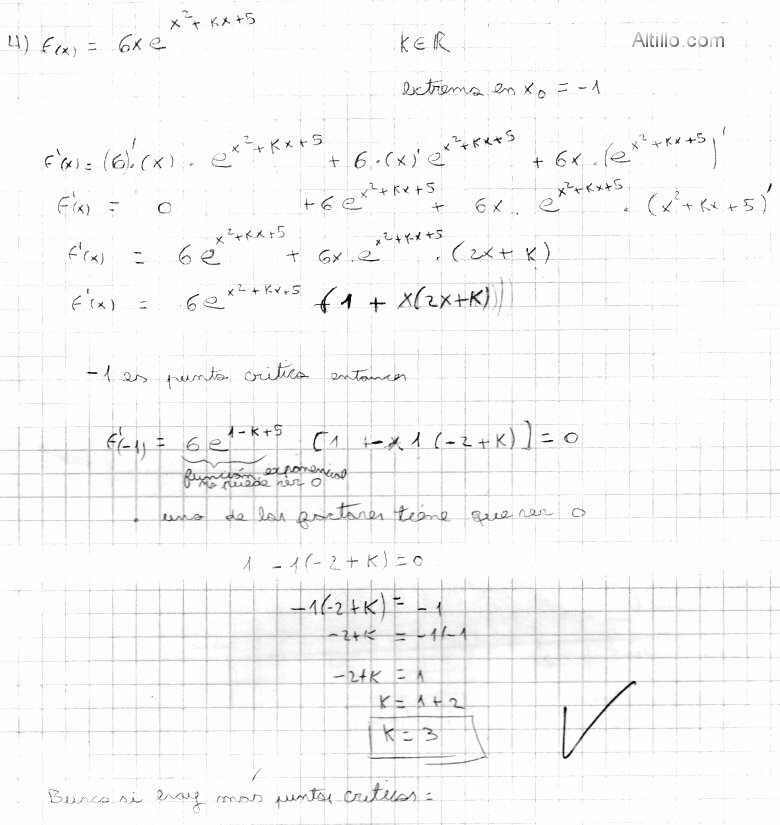 4) F(x) = 6x e^(x²+Kx+5) K∈R Altillo.com
extremo en x₀ = -1
F'(x) = (6)'.(x) . e^(x²+Kx+5) + 6.(x)' e^(x²+Kx+5) + 6x.(e^(x²+Kx+5))'
F'(x) = 0 +6 e^(x²+Kx+5) + 6x. e^(x²+Kx+5) . (x²+Kx+5)'
F'(x) = 6e^(x²+Kx+5) + 6x.e^(x²+Kx+5) .(2x+K)
F'(x) = 6e^(x²+Kx+5) (1 + x(2x+K))
-1 es punto critico entonces
F'(-1) = 6e^(1-K+5) [1 - 1(-2+K)] = 0
función exponencial
no puede ser 0
. uno de los factores tiene que ser 0
1 -1(-2+K) = 0
-1(-2+K) = -1
-2+K = -1/-1
-2+K = 1
K = 1+2
K = 3
Busco si hay más puntos criticos =